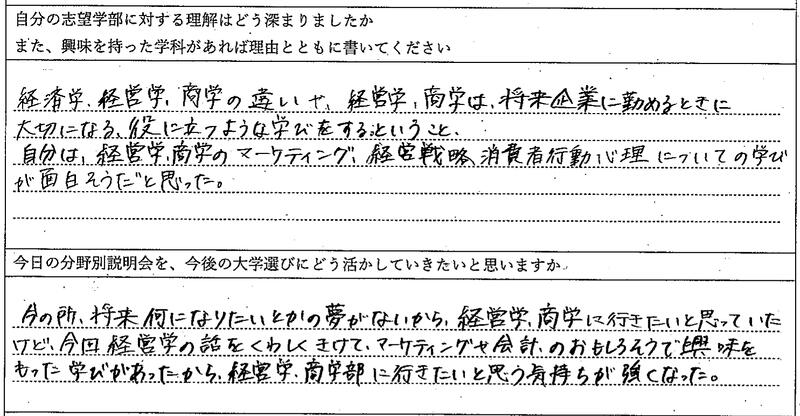 自分の志望学部に対する理解はどう深まりましたか
また、興味を持った学科があれば理由とともに書いてください
経済学、経営学、商学の違いや、経営学、商学は、将来企業に勤めるときに
大切になる、役に立つような学びをするということ、
自分は、経営学、商学のマーケティング、経営戦略、消費者行動心理についての学び
が面白そうだと思った。
今日の分野別説明会を、今後の大学選びにどう活かしていきたいと思いますか
今の所、将来何になりたいとかの夢がないから、経営学、商学に行きたいと思っていた
けど、今回経営学の話をくわしくきけて、マーケティングや会計、のおもしろそうで興味を
もった学びがあったから、経営学、商学部に行きたいと思う気持ちが強くなった。